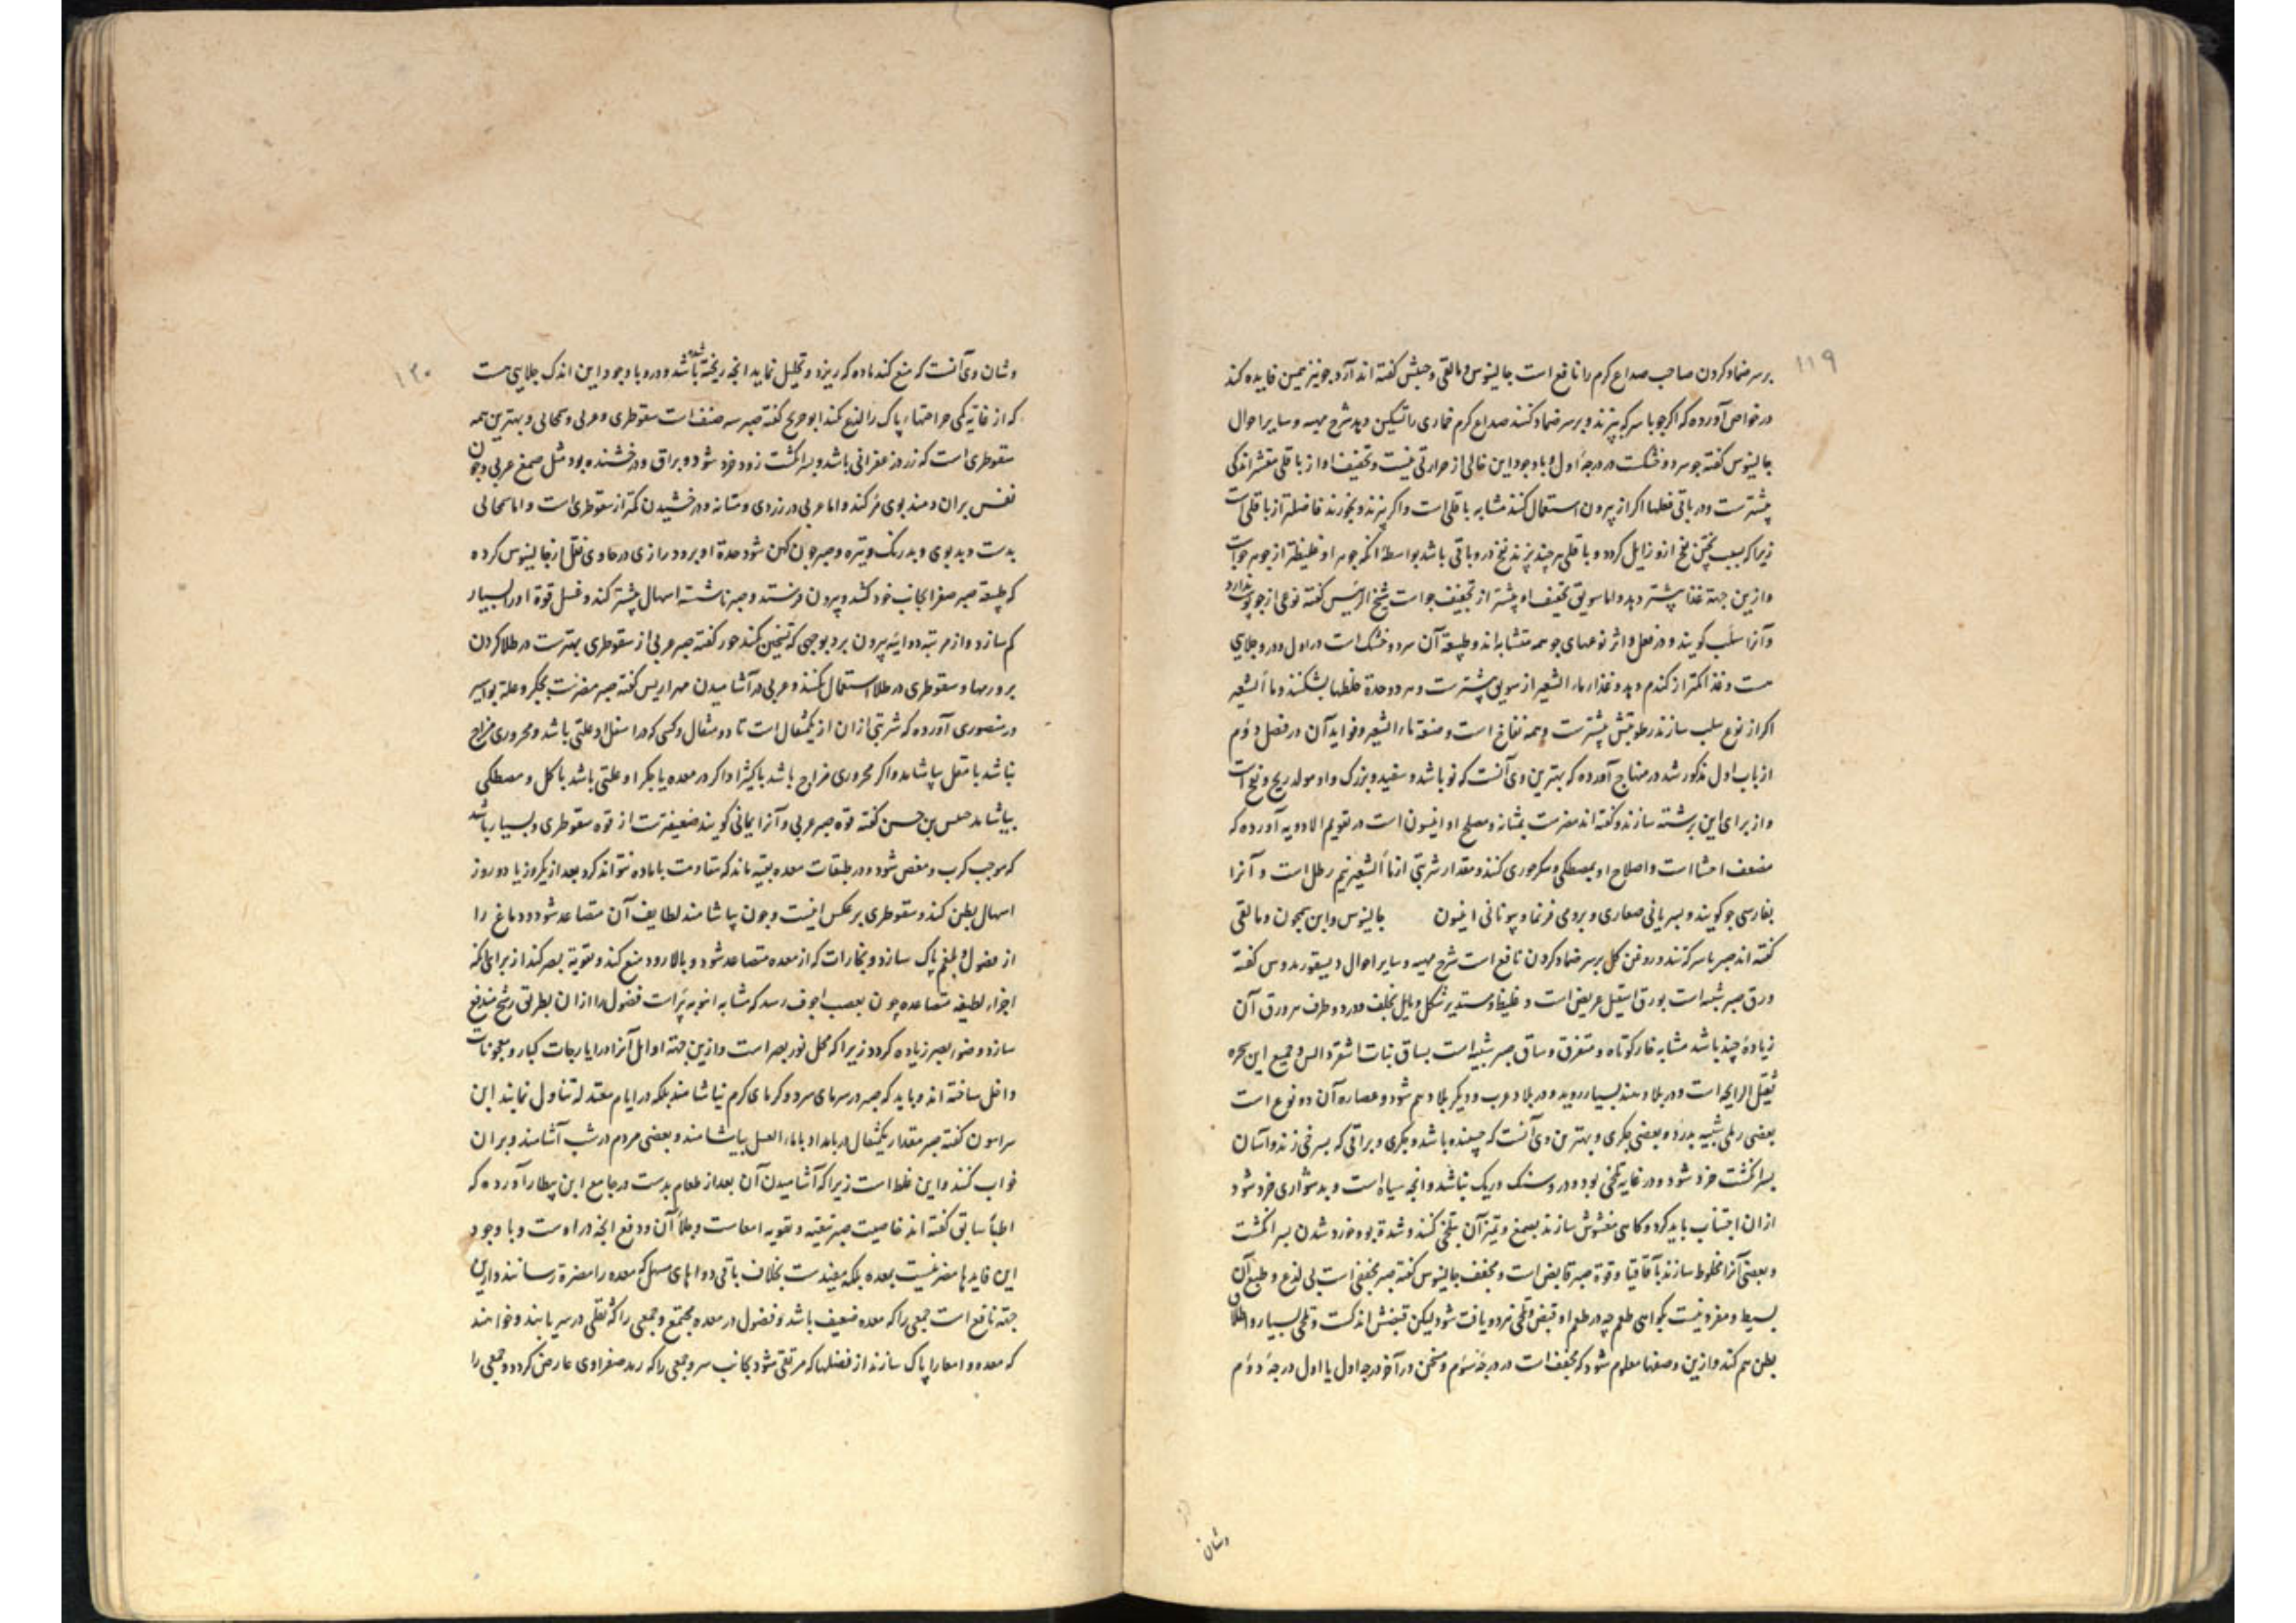 ١١٩
بر سر ضماد کردن صاحب صداع کرم را نافع است جالینوس و مالقی و حبش کفته اند آرد جو نیز همین فایده کند
در خواص آورده که اکر جو با سرکه بپزند و بر سر ضماد کنند صداع کرم خماری را تسکین دهد شرح مهیه و سایر احوال
جالینوس کفته جو سرد و خشکست در درجهٔ اول و با وجود این خالی از حرارتی نیست و تجفیف او از باقلی مقشر اندکی
بیشترست و در باقی فعلها اکر از بیرون استعمال کنند مشابه باقلی است و اکر بپزند و بخورند فاضلتر از باقلی است
زیرا که بسبب پختن نفخ ازو زایل کردد و باقلی هر چند بپزند نفخ درو باقی باشد بواسطهٔ آنکه جوهر او غلیظتر از جوهر جو است
و ازین جهة غذا بیشتر دهد و اما سویق تجفیف او بیشتر از تجفیف جو است شیخ الرئیس کفته نوعی از جو پوست ندارد
و آنرا سلب کویند و در فعل و اثر نوعهای جو همه متشابه اند و طبیعة آن سرد و خشک است در اول و درو جلایی
هست و غذا کمتر از کندم دهد و غذاء ماء الشعیر از سویق بیشترست و هر دو حدة خلطها بشکنند و ماء الشعیر
اکر از نوع سلب سازند رطوبتش بیشترست و همه نفاخ است و صنعة ماء الشعیر و فواید آن در فصل دوم
از باب اول مذکور شد در منهاج آمده که بهترین وی آنست که نو باشد و سفید و بزرک و او مولد ریح و نفخ است
و از برای این برشته سازند و کفته اند مضرست بمثانه و مصلح او انیسون است در تقویم الادویه آورده که
مضعف احشا است و اصلاح او بمصطکی و سکر جوری کنند و مقدار شربتی از ماء الشعیر نیم رطل است و آنرا
بفارسی جو کویند و بسریانی صعاری و برومی فرنما و بیونانی افیون جالینوس و ابن سمجون و مالقی
کفته اند صبر با سرکه تند و روغن کل بر سر ضماد کردن نافع است شرح مهیه و سایر احوال دیسقوریدوس کفته
ورق صبر شبیه است بورق اسقیل عریض است و غلیظ و مستدیر شکل و مایل بخلف و در دو طرف هر ورق آن
زیادهٔ چند باشد مشابه خار کوتاه و متفرق و ساق صبر شبیه است بساق نبات اشقر دالس و جمیع این شجره
ثقیل الرایحه است و در بلاد هند بسیار روید و در بلاد عرب و دیکر بلاد هم شود و عصاره آن دو نوع است
بعضی رملی شبیه بدرد و بعضی جکری و بهترین وی آنست که چسبنده باشد و جکری و براقی که بسرخی زند و آسان
بسر انکشت خرد شود و در غایة تلخی بود و درو سنک و ریک نباشد و آنچه سیاه است و بدشواری خرد شود
از آن اجتناب باید کرد و کاهی مغشوش سازند بصمغ و تمیز آن بتلخی کنند و شدة بو و خورد شدن بسر انکشت
و بعضی آنرا مخلوط سازند باقاقیا و قوة صبر قابض است و مجفف جالینوس کفته صبر مجففی است بی لذع و طبع آن
بسیط و مفرد نیست بکواهی طعم چه در طعم او قبض و تلخی هر دو یافت شود لیکن قبضش اندکست و تلخی بسیار و اطلاق
بطن هم کند و ازین وصفها معلوم شود که مجفف است در درجهٔ سوم و مسخن در آخر درجه اول یا اول درجهٔ دوم
وشان
١٢٠
وشان وی آنست که منع کند ماده که ریزد و تحلیل نماید آنچه ریخته شده باشد و درو با وجود این اندک جلایی هست
که از غایة کمی جراحتهاء پاک را لذع نکند ابو جریح کفته صبر سه صنف است سقوطری و عربی و سمحانی و بهترین همه
سقوطری است که زرد زعفرانی باشد و بسر انکشت زود خرد شود و براق و درخشنده بود مثل صمغ عربی و چون
نفس بر آن دمند بوی مر کند و اما عربی در زردی و متانه و درخشیدن کمتر از سقوطری است و اما سمحانی
بدست و بدبوی و بدرنک و تیره و صبر چون کهن شود حدة او برود رازی در حاوی نقل از جالینوس کرده
که طبیعة صبر صفرا بجانب خود کشد و بیرون فرستد و صبر ناشسته اسهال بیشتر کند و غسل قوة او را بسیار
کم سازد و از مرتبه دوائیه بیرون برد بوجهی که تسخین نکند خور کفته صبر عربی از سقوطری بهترست در طلا کردن
بر ورمها و سقوطری در طلا استعمال نکنند و عربی در آشامیدن مهراریس کفته صبر مضرست بجکر و علة بواسیر
در منصوری آورده که شربتی از آن از یکمثقال است تا دو مثقال و کسی که در اسفل او علتی باشد و محروری مزاج
نباشد با مقل بیاشامد و اکر محروری مزاج باشد با کثیرا و اکر در معده یا جکر او علتی باشد با کل و مصطکی
بیاشامد حبیش بن حسن کفته قوه صبر عربی و آنرا یمانی کویند ضعیفترست از قوه سقوطری و بسیار باشد
که موجب کرب و مغص شود و در طبقات معده بقیه ماند که مقاومت با ماده نتواند کرد بعد از یکروز یا دو روز
اسهال بطن کند و سقوطری بر عکس اینست و چون بیاشامند لطایف آن متصاعد شود و دماغ را
از فضول و بلغم پاک سازد و بخارات که از معده متصاعد شود و بالا رود منع کند و تقویة بصر کند از برای آنکه
اجزاء لطیفه متصاعده چون بعصب اجوف رسد که مشابه انبوبه پر است فضول را از آن بطریق رشح مندفع
سازد و ضوء بصر زیاده کردد زیرا که محل نور بصر است و ازین جهة اوایل آنرا در ایارجات کبار و معجونات
داخل ساخته اند و باید که صبر در سرمای سرد و کرمای کرم نیاشامند بلکه در ایام معتدله تناول نمایند ابن
سرامون کفته صبر مقدار یکمثقال در بامداد با ماء العسل بیاشامند و بعضی مردم در شب آشامند و بر آن
خواب کنند و این غلط است زیرا که آشامیدن آن بعد از طعام بدست در جامع ابن بیطار آورده که
اطباء سابق کفته اند خاصیت صبر تنقیه و تقویه امعاست و جلاء آن و دفع آنچه در اوست و با وجود
این فایدها مضر نیست بمعده بلکه مفیدست بخلاف باقی دواهای مسهل که معده را مضرة رسانند و ازین
جهة نافع است جمعی را که معده ضعیف باشد و فضول در معده مجتمع و جمعی را که ثقلی در سر یابند و خواهند
که معده و امعا را پاک سازند از فضلها که مرتقی شود بجانب سر و جمعی را که رمد صفراوی عارض کردد و جمعی را